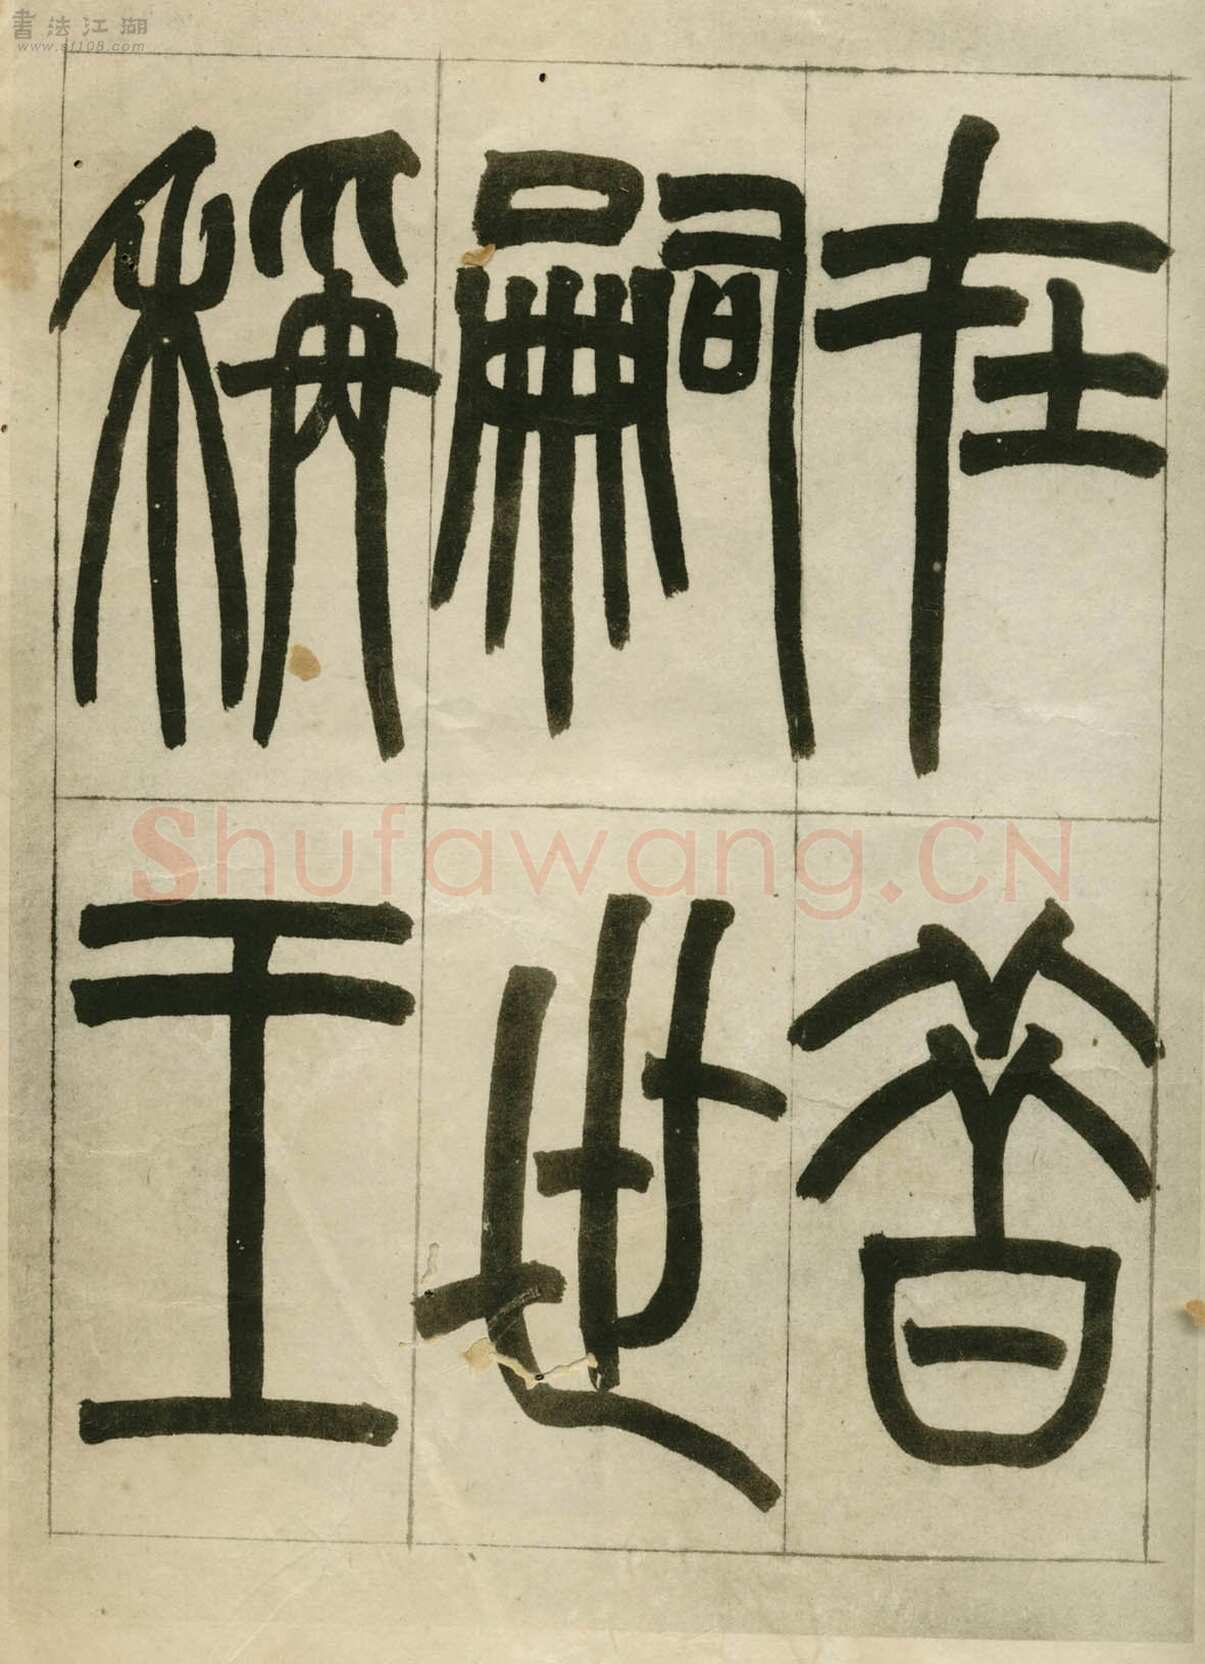 書法江湖
www.sf108.com
在昔
嗣世
稱王
Shufawang.CN